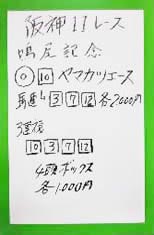 阪神11レース
鳴尾記念
◎10 ヤマカツエース
馬連 3 7 12 各2000円
3連複
10 3 7 12
4頭ボックス
各1,000円